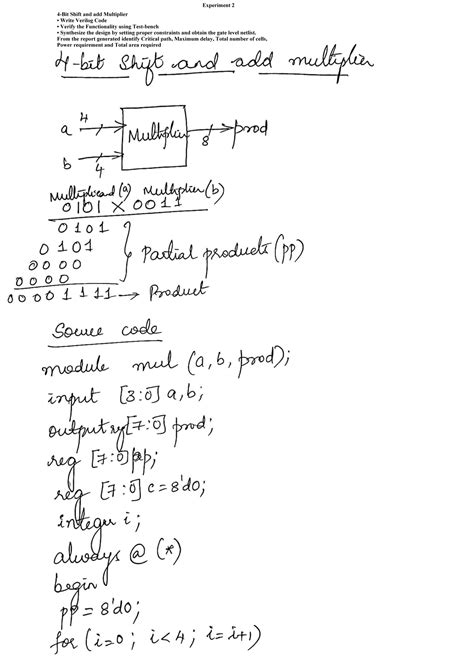 Experiment 2
4-Bit Shift and add Multiplier
• Write Verilog Code
• Verify the Functionality using Test-bench
• Synthesize the design by setting proper constraints and obtain the gate level netlist.
From the report generated identify Critical path, Maximum delay, Total number of cells,
Power requirement and Total area required
4-bit Shift and add multiplier
4
a
Multiplier
8
prod
b
4
Multiplicand (a) Multiplier (b)
0101 X 0011
0101
0101
0000
0000
Partial products (pp)
00001111 → Product
Source code
module mul (a, b, prod);
input [3:0] a, b;
output reg [7:0] prod;
reg [7:0] pp;
reg [7:0] c = 8'd0;
integer i;
always @ (*)
begin
pp = 8'd0;
for (i=0; i<4; i=i+1)